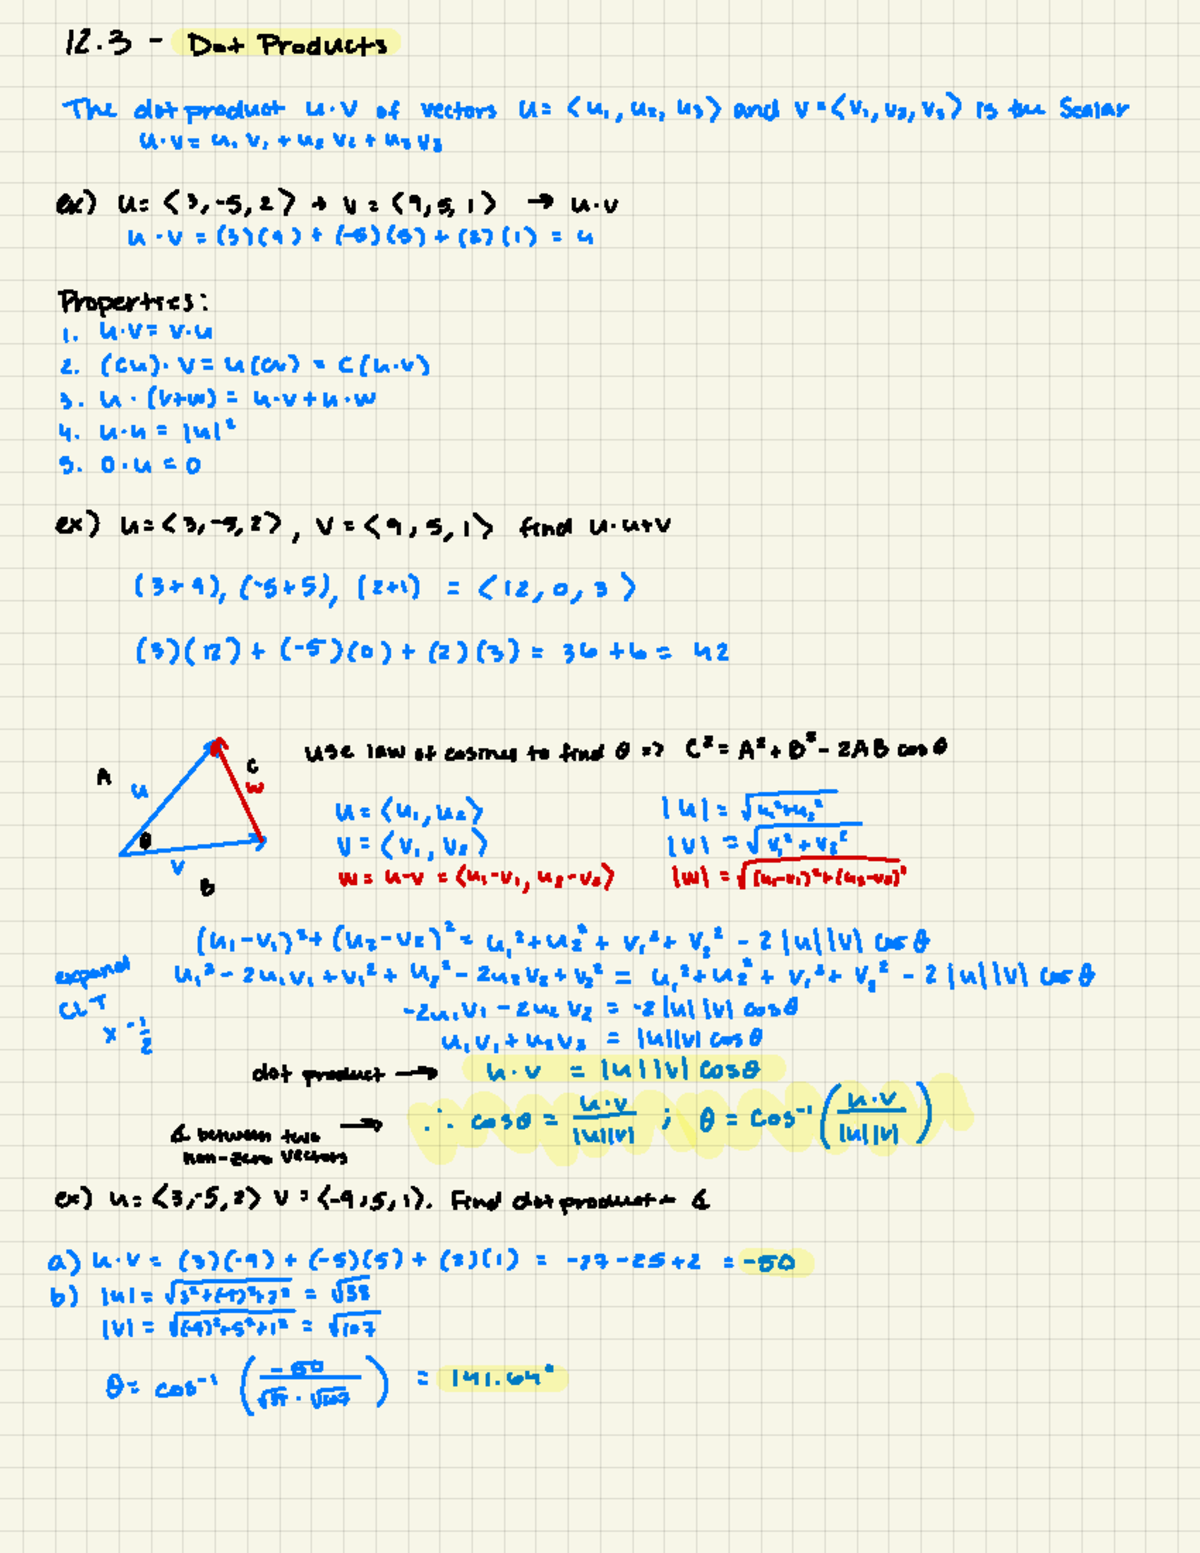 12.3 - Dot Products
The dot product u·v of vectors u = ⟨u₁, u₂, u₃⟩ and v = ⟨v₁, v₂, v₃⟩ is the Scalar
u·v = u₁v₁ + u₂v₂ + u₃v₃
ex) u = ⟨3,-5,2⟩ + v = ⟨9,5,1⟩ → u·v
u·v = (3)(9) + (-5)(5) + (2)(1) = 4
Properties:
1. u·v = v·u
2. (cu)·v = u(cv) = c(u·v)
3. u·(v+w) = u·v + u·w
4. u·u = |u|²
5. 0·u = 0
ex) u = ⟨3,-5,2⟩, v = ⟨9,5,1⟩ find u·u+v
(3+9), (-5+5), (2+1) = ⟨12, 0, 3⟩
(3)(12) + (-5)(0) + (2)(3) = 36 + 6 = 42
use law of cosines to find θ => C² = A² + B² - 2AB cos θ
A u θ v B C w
u = ⟨u₁, u₂⟩ |u| = √(u₁²+u₂²)
v = ⟨v₁, v₂⟩ |v| = √(v₁²+v₂²)
w = u-v = ⟨u₁-v₁, u₂-v₂⟩ |w| = √((u₁-v₁)²+(u₂-v₂)²)
(u₁-v₁)² + (u₂-v₂)² = u₁² + u₂² + v₁² + v₂² - 2|u||v| cos θ
expand u₁² - 2u₁v₁ + v₁² + u₂² - 2u₂v₂ + v₂² = u₁² + u₂² + v₁² + v₂² - 2|u||v| cos θ
CLT -2u₁v₁ - 2u₂v₂ = -2|u||v| cos θ
x -1/2 u₁v₁ + u₂v₂ = |u||v| cos θ
dot product → u·v = |u||v| cos θ
∡ between two non-zero vectors → ∴ cos θ = u·v/|u||v| ; θ = cos⁻¹(u·v/|u||v|)
ex) u = ⟨3,-5,2⟩ v = ⟨-9,5,1⟩. Find dot product + ∡
a) u·v = (3)(-9) + (-5)(5) + (2)(1) = -27-25+2 = -50
b) |u| = √(3²+(-5)²+2²) = √38
|v| = √((-9)²+5²+1²) = √107
θ = cos⁻¹(-50/√38·√107) = 141.64°